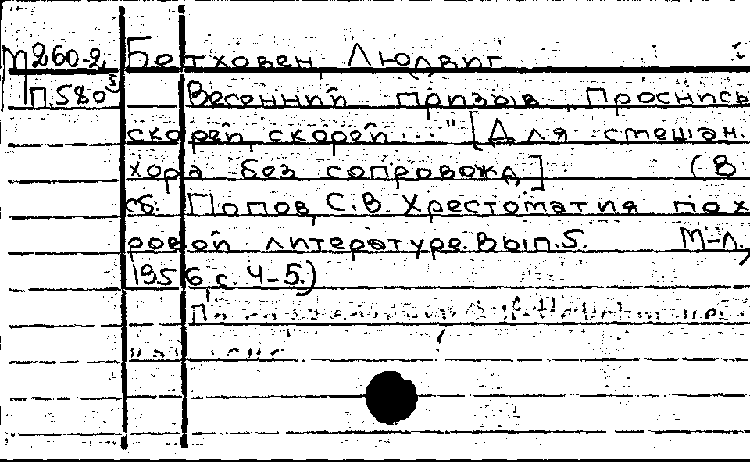 М260-2 Бетховен, Людвиг
П580 Весенний призыв „Проснись
скорей, скорей..." [Для смешан.
хора без сопровожд.] (В
сб. Попов, С.В. Хрестоматия по х
ровой литературе. Вып.5. М-Л,
1956, с. 4-5.)